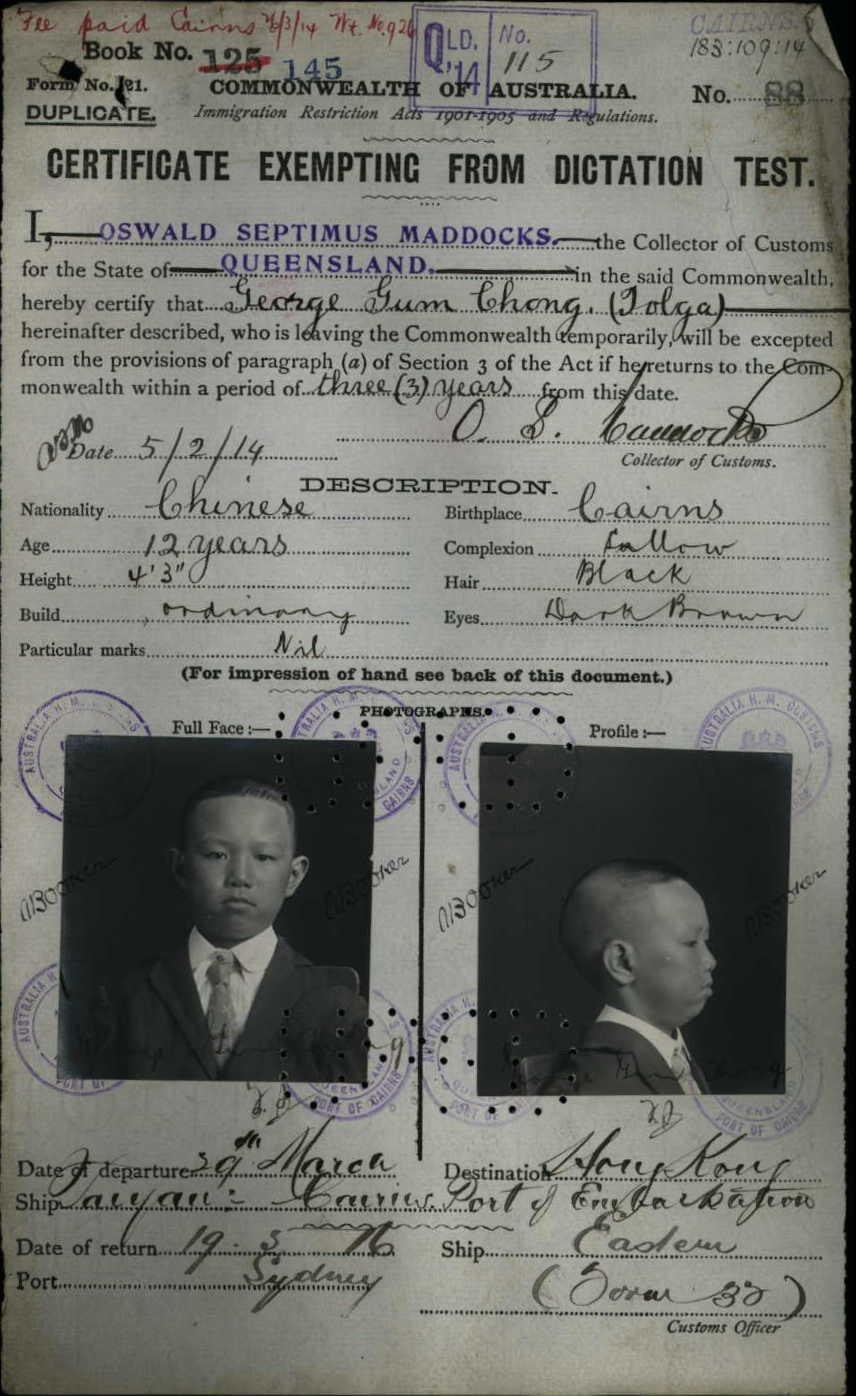 Fee paid Cairns 26/3/14 Wt. No. 926
CAIRNS
Book No. 125 145
QLD. No.
'14 115
183:109:14
Form No. 21.
COMMONWEALTH OF AUSTRALIA.
No. 88
DUPLICATE.
Immigration Restriction Acts 1901-1905 and Regulations.
CERTIFICATE EXEMPTING FROM DICTATION TEST.
I, OSWALD SEPTIMUS MADDOCKS, the Collector of Customs
for the State of QUEENSLAND. in the said Commonwealth,
hereby certify that George Gum Chong. (Tolga)
hereinafter described, who is leaving the Commonwealth temporarily, will be excepted
from the provisions of paragraph (a) of Section 3 of the Act if he returns to the Com-
monwealth within a period of three (3) years from this date.
O. S. Maddocks
Date 5/2/14
Collector of Customs.
DESCRIPTION.
Nationality Chinese
Birthplace Cairns
Age 12 years
Complexion Sallow
Height 4'3"
Hair Black
Build ordinary
Eyes Dark Brown
Particular marks Nil
(For impression of hand see back of this document.)
PHOTOGRAPHS.
Full Face:—
Profile:—
AUSTRALIA H. M. CUSTOMS
QUEENSLAND
PORT OF CAIRNS
George Gum Chong
Date of departure 29th March
Destination Hong Kong
Ship Taiyuan: Cairns. Port of Embarkation
Date of return 19 3 16
Ship Eastern
Port Sydney
(Form 32)
Customs Officer